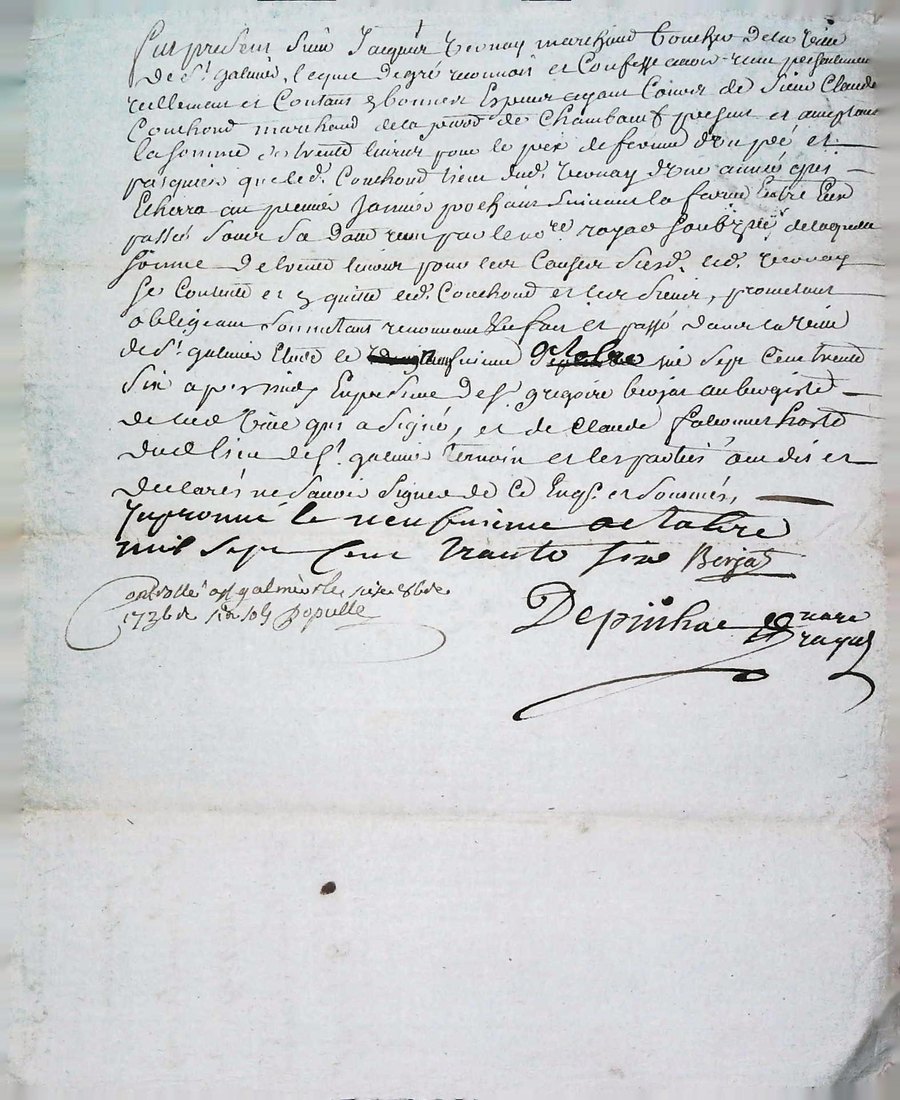 fut present Sieur Jacques Vernay marchand boucher de la ville
de St galmier, lequel de gré reconnois et Confesse avoir reçu
reellement et Contant en bonnes Especes ayant Cours de Sieur Claude
Couchoud marchand de la parrd de Chambœuf present et acceptant
la somme de trente livres pour le prix de ferme d'un pré et
pasquier que led. Couchoud tient dud. Vernay d'une année qui
Echerra au premier Janvier prochain suivant la ferme Entre Eux
passée sous sa datte reçu par le nore royal soubzné, de laquelle
somme de trente livres pour les Causes susd. led. Vernay
se Contente et en quitte led. Couchoud et les siens, promettant
obligeant soumettant renonceant fait et passé dans la ville
de St galmier Etude le neufvieme octobre mil sept Cent trente
six apres midy En presence de sr gregoire berjat aubergiste
de lad. ville qui a signé, et de Claude hoste
dud. lieu de St galmier temoin et les parties ont dit et
declarés ne savoir signer de Ce Enqs. et sommés,
le neufvieme octobre
mil sept Cent trante six Berjat
Controllé a St galmier le 8bre
1736 six sols Populle
Depinhac nore
royal